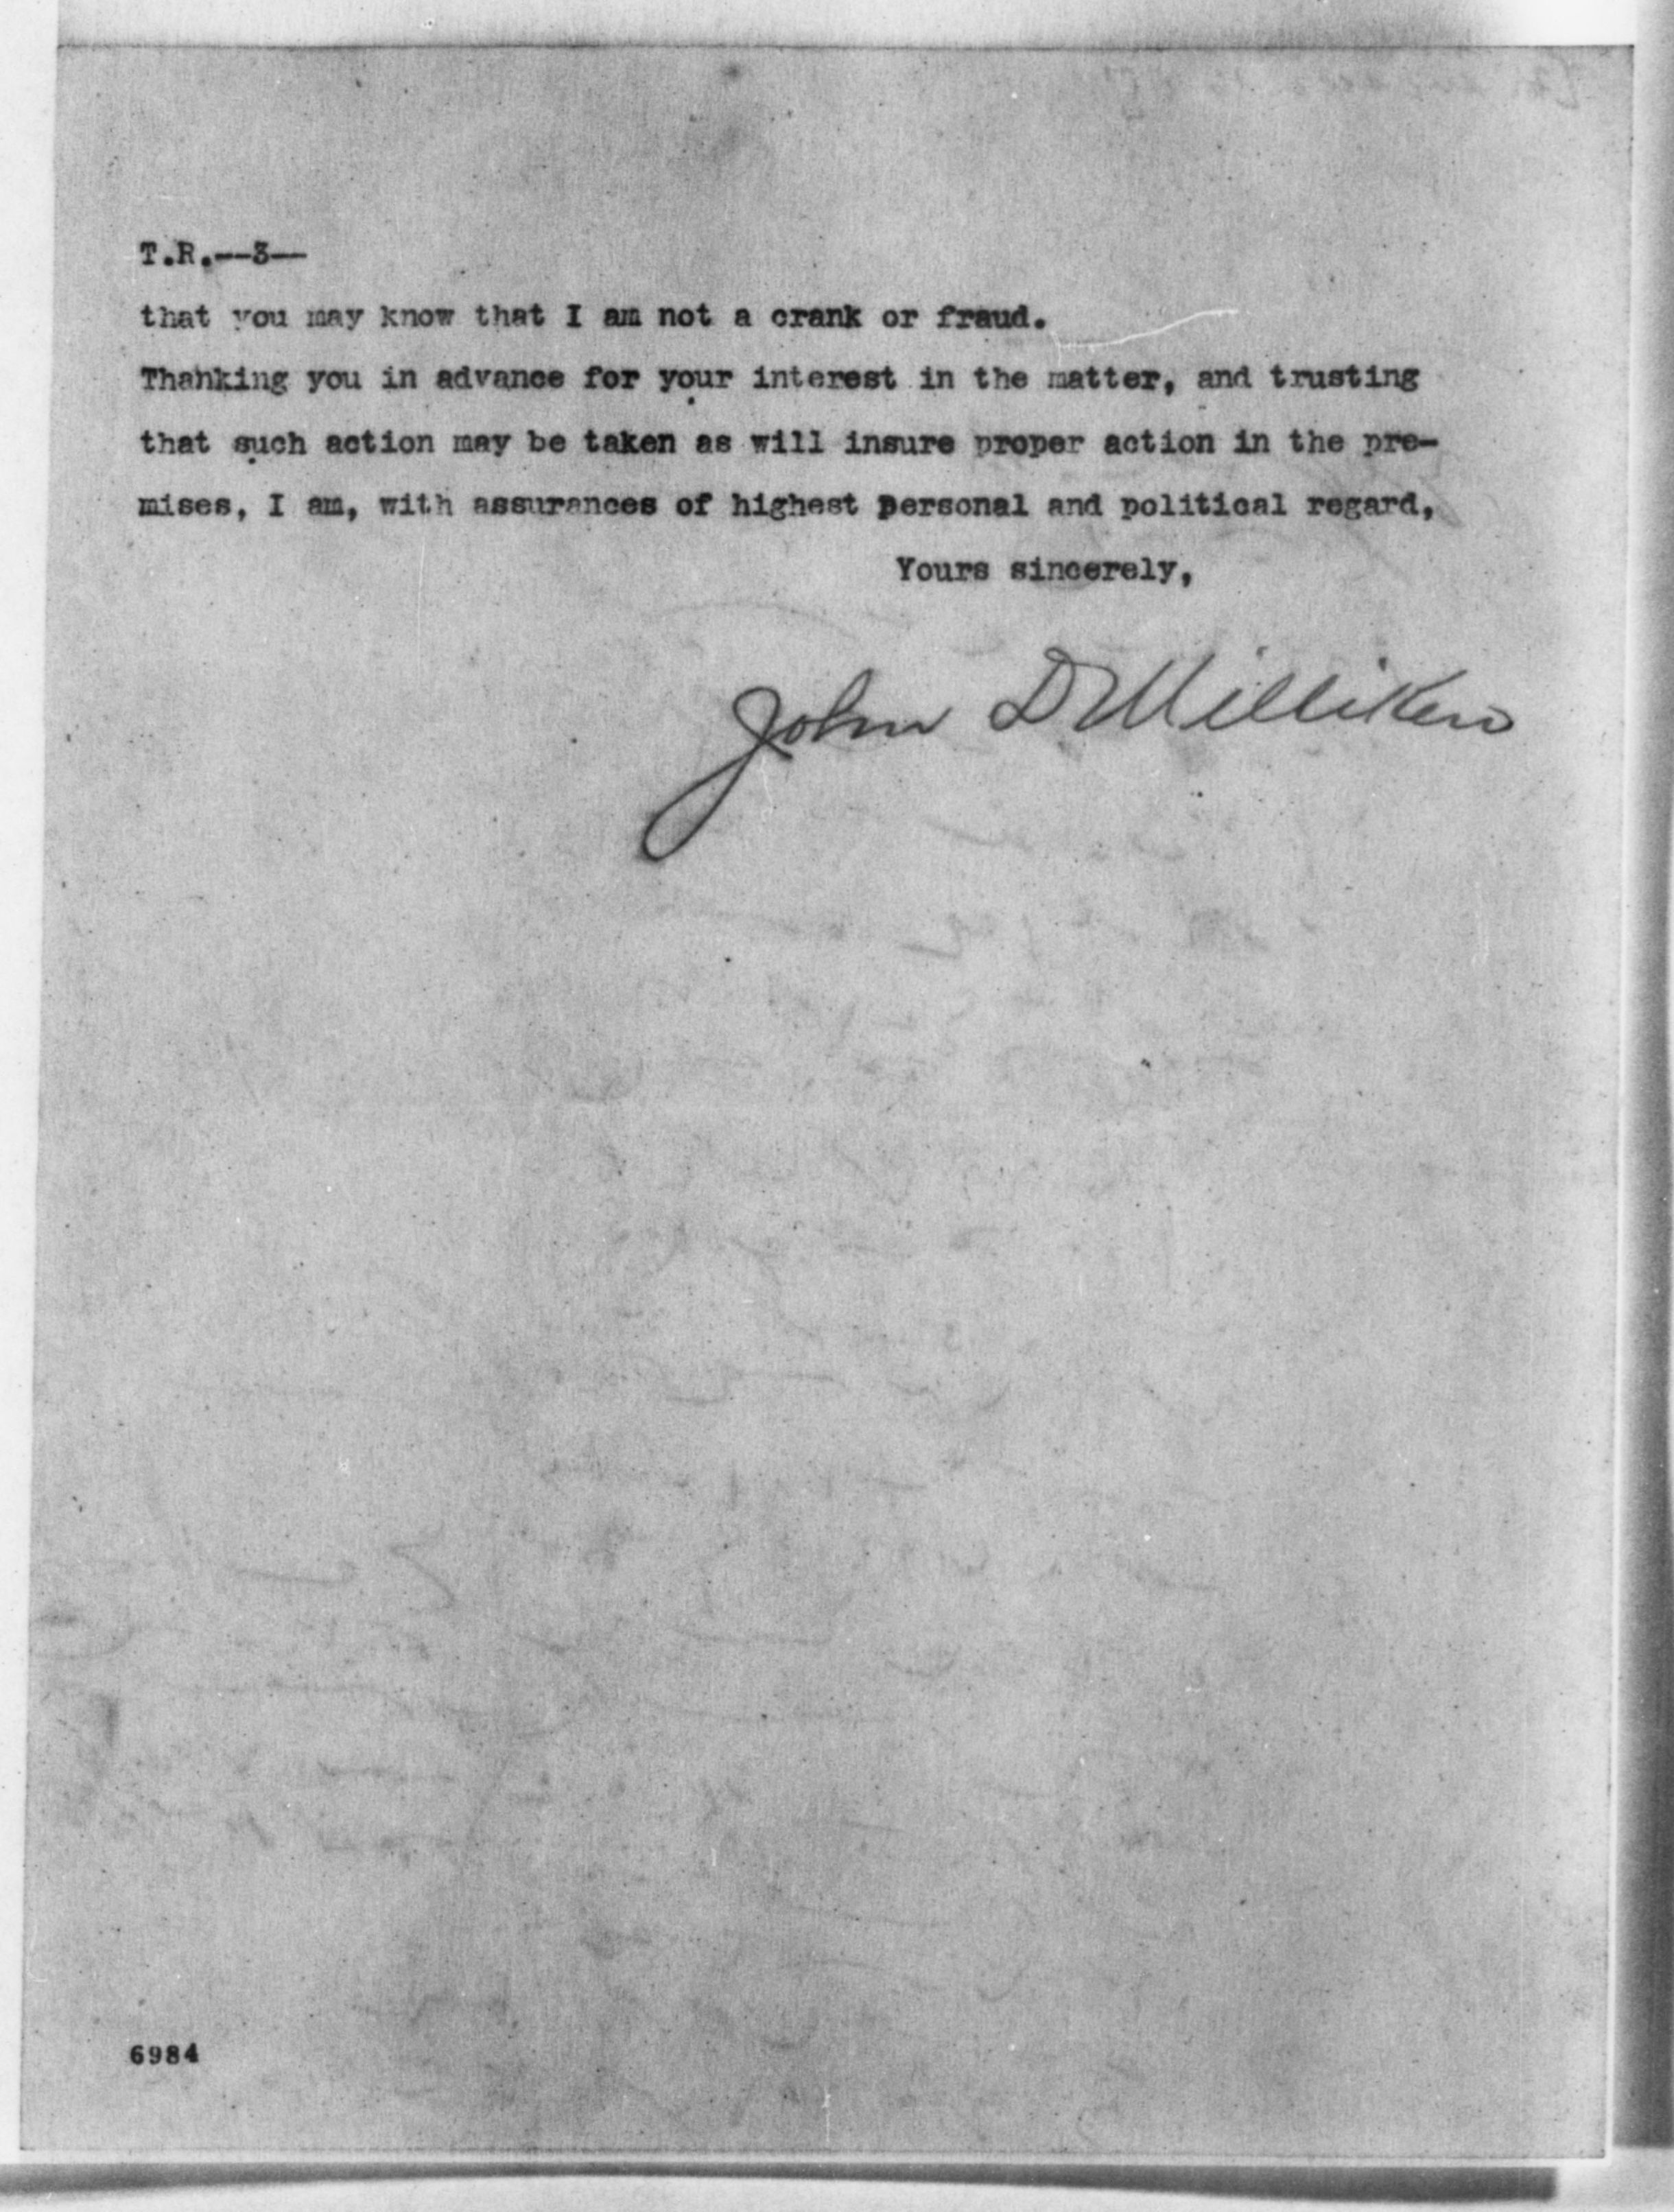 T.R.--3--
that you may know that I am not a crank or fraud.
Thanking you in advance for your interest in the matter, and trusting
that such action may be taken as will insure proper action in the pre-
mises, I am, with assurances of highest personal and political regard,
Yours sincerely,
John D Milliken
6984